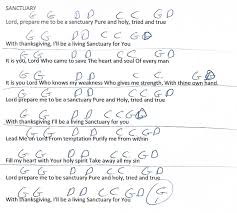 SANCTUARY
G G D D C C G D
Lord, prepare me to be a sanctuary Pure and holy, tried and true
G G D D C C G D
With thanksgiving, I'll be a living Sanctuary for You
G G D D C C G D
It is you, Lord Who came to save The heart and soul Of every man
G G D D C C G D
It is you Lord Who knows my weakness Who gives me strength, With thine own hand.
G G D D C C G D
Lord prepare me to be sanctuary Pure and Holy, tried and true
G G D D C C G D
With thanksgiving I'll be a living Sanctuary for You
G G D D C C G D
Lead Me on Lord From temptation Purify me From within
G G D D C C G D
Fill my heart with Your holy spirit Take away all my sin
G G D D C C G D
Lord prepare me to be sanctuary Pure and holy, tried and true
G G D D C C G D G
With thanksgiving I'll be a living Sanctuary for You